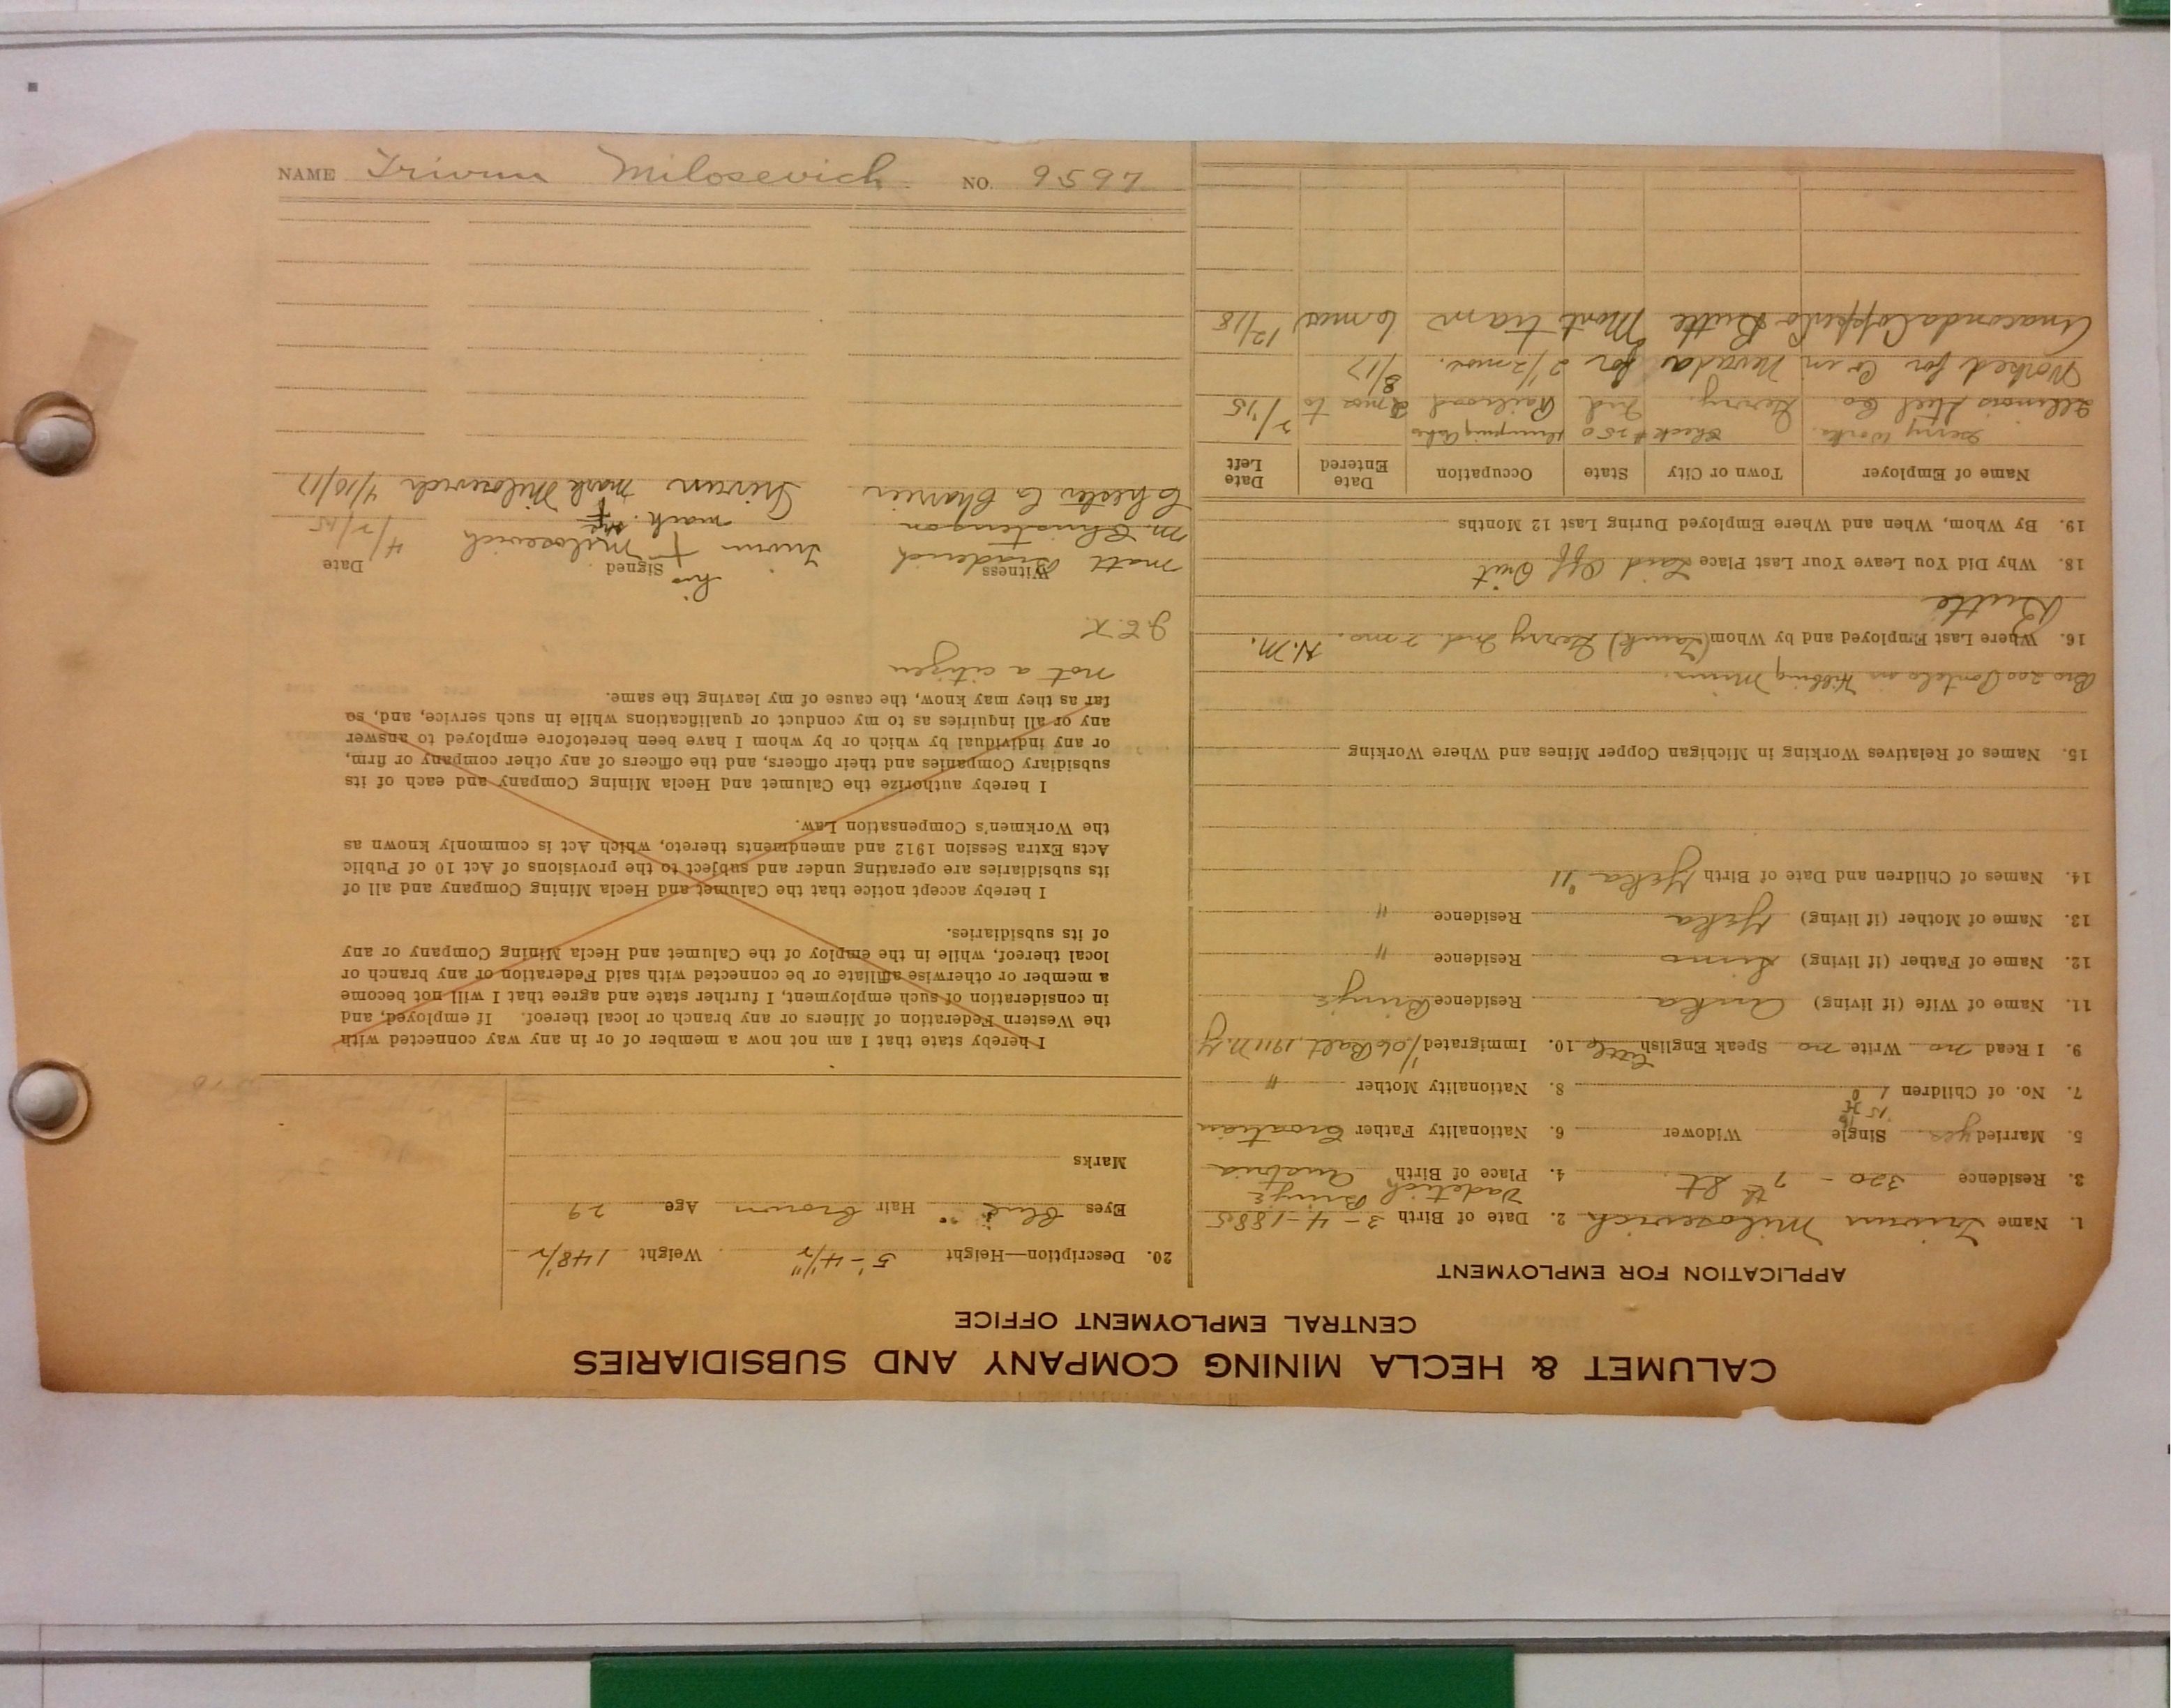 NAME Trivun Milosevich NO. 9597
CALUMET & HECLA MINING COMPANY AND SUBSIDIARIES
CENTRAL EMPLOYMENT OFFICE
APPLICATION FOR EMPLOYMENT
1. Name Trivun Milosevich 2. Date of Birth 3-4-1885
3. Residence 320 - 7th St. 4. Place of Birth Austria
5. Married yes Single Widower 6. Nationality Father Croatian
7. No. of Children 1 8. Nationality Mother "
9. I Read no Write no Speak English little 10. Immigrated 1/06 Balt, 1911 N.Y
11. Name of Wife (if living) Anka Residence
12. Name of Father (if living) Simo Residence "
13. Name of Mother (if living) Yeka Residence "
14. Names of Children and Date of Birth Yeka '11
15. Names of Relatives Working in Michigan Copper Mines and Where Working
Hibbing Minn.
16. Where Last Employed and by Whom Gerry Ind. 2 mo. N.M.
Butte
18. Why Did You Leave Your Last Place Laid Off Quit
19. By Whom, When and Where Employed During Last 12 Months
Name of Employer Town or City State Occupation Date Entered Date Left
Gerry Works. Check # 250
Illinois Steel Co Gerry. Ind Railroad 2 mos to 2/15
Worked for Co in Nevada for 2 1/2 mos. 8/17
Anaconda Copper Co Butte Mont tram 6 mos 12/18
20. Description—Height 5'-4 1/2" Weight 148 1/2
Eyes Blue Hair brown Age 29
Marks
I hereby state that I am not now a member of or in any way connected with
the Western Federation of Miners or any branch or local thereof. If employed, and
in consideration of such employment, I further state and agree that I will not become
a member or otherwise affiliate or be connected with said Federation or any branch or
local thereof, while in the employ of the Calumet and Hecla Mining Company or any
of its subsidiaries.
I hereby accept notice that the Calumet and Hecla Mining Company and all of
its subsidiaries are operating under and subject to the provisions of Act 10 of Public
Acts Extra Session 1912 and amendments thereto, which Act is commonly known as
the Workmen's Compensation Law.
I hereby authorize the Calumet and Hecla Mining Company and each of its
subsidiary Companies and their officers, and the officers of any other company or firm,
or any individual by which or by whom I have been heretofore employed to answer
any or all inquiries as to my conduct or qualifications while in such service, and, so
far as they may know, the cause of my leaving the same.
not a citizen
J.E.K.
Witness Signed Date
Matt his Trivun + Milosevich 4/2/15
mark.
Trivun mark Milosevich 4/10/17